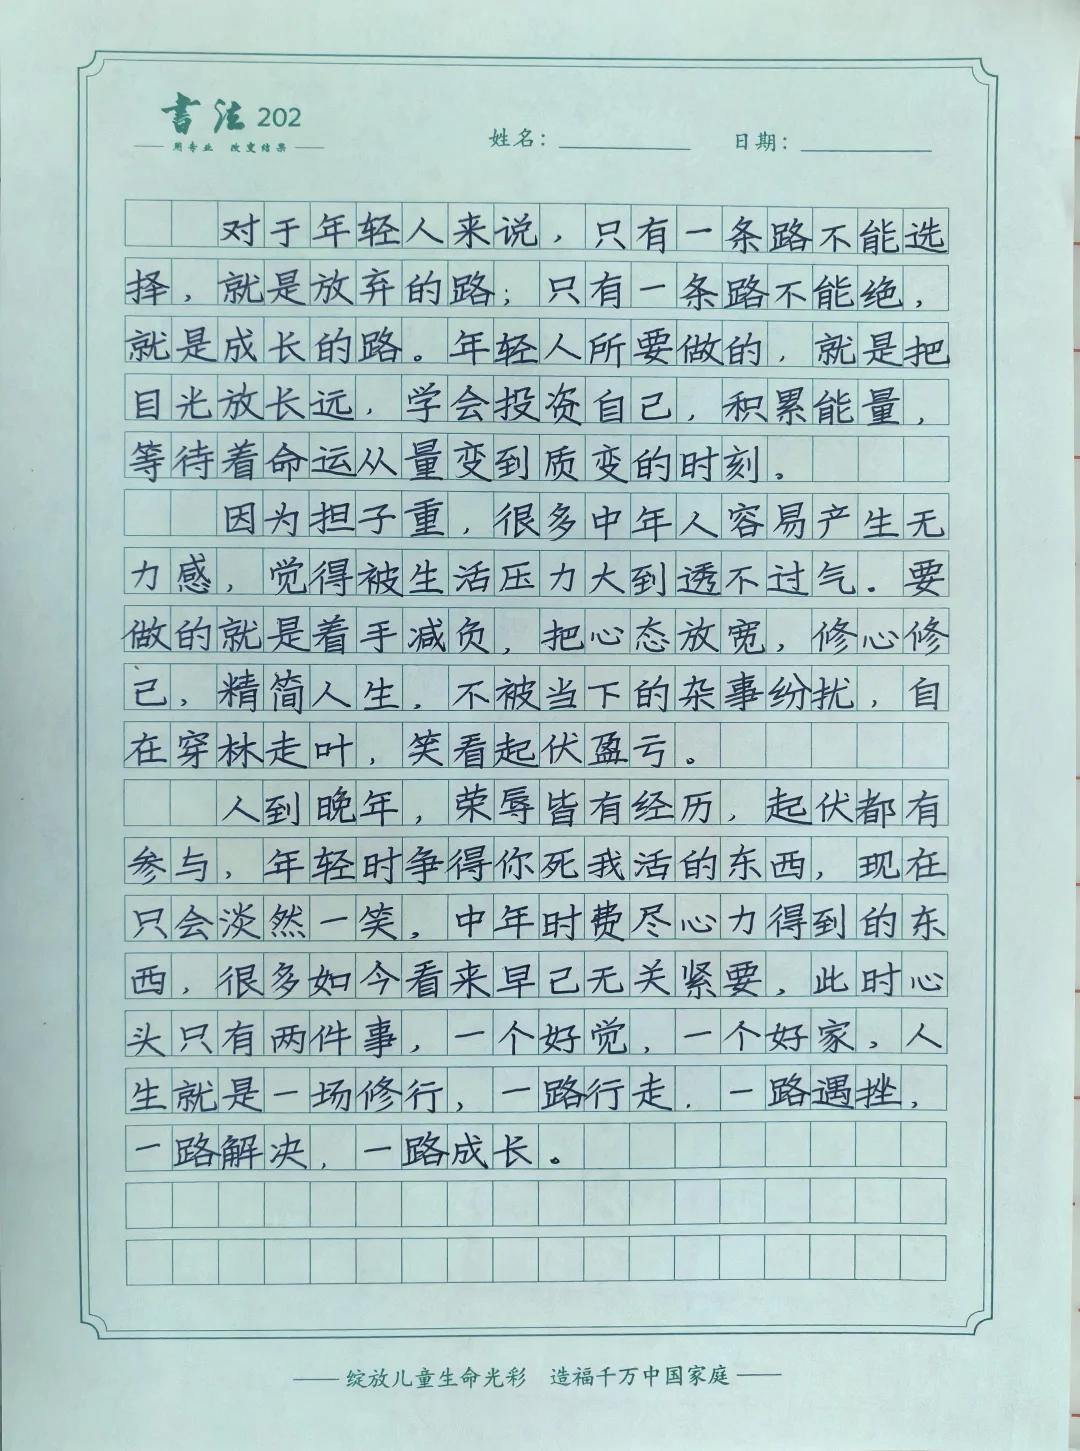 書法202
用专业 改变结果
姓名：
日期：
对于年轻人来说，只有一条路不能选
择，就是放弃的路；只有一条路不能绝，
就是成长的路。年轻人所要做的，就是把
目光放长远，学会投资自己，积累能量，
等待着命运从量变到质变的时刻。
因为担子重，很多中年人容易产生无
力感，觉得被生活压力大到透不过气．要
做的就是着手减负，把心态放宽，修心修
己，精简人生．不被当下的杂事纷扰，自
在穿林走叶，笑看起伏盈亏。
人到晚年，荣辱皆有经历，起伏都有
参与，年轻时争得你死我活的东西，现在
只会淡然一笑，中年时费尽心力得到的东
西，很多如今看来早已无关紧要，此时心
头只有两件事，一个好觉，一个好家，人
生就是一场修行，一路行走．一路遇挫，
一路解决，一路成长。
绽放儿童生命光彩 造福千万中国家庭